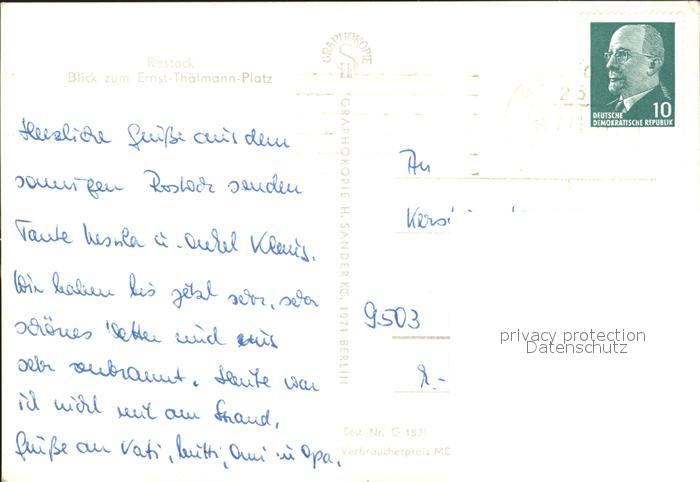 Rostock
Blick zum Ernst-Thälmann-Platz
GRAPHOKOPIE
10
DEUTSCHE
DEMOKRATISCHE REPUBLIK
Herzliche Grüße aus dem
sonnigen Rostock senden
Tante Ursula u. Onkel Klaus.
Wir haben bis jetzt sehr, sehr
schönes Wetter und sind
sehr verbrannt. Heute war
ich nicht mit am Strand.
Grüße an Vati, Mutti, Omi u Opa.
GRAPHOKOPIE H. SANDER KG, 1071 BERLIN
An
9503
privacy protection
Datenschutz
Best.-Nr. G 1831
Verbraucherpreis MD